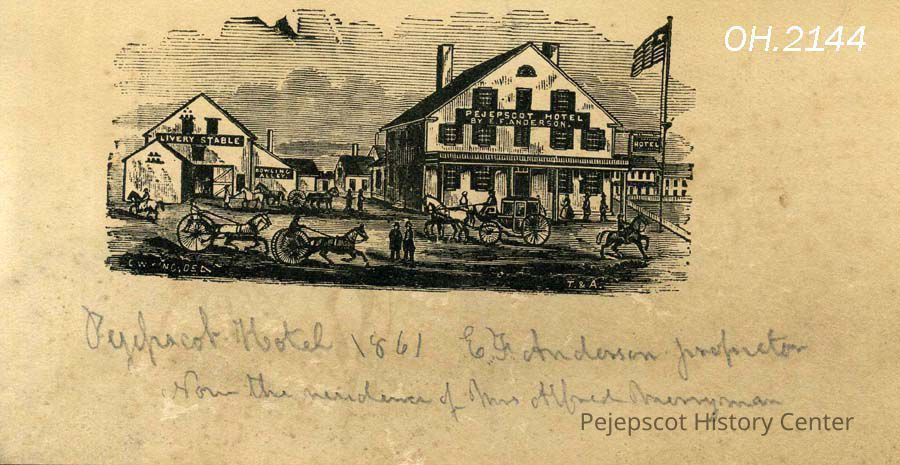 OH.2144
PEJEPSCOT HOTEL
BY E.F. ANDERSON.
LIVERY STABLE
HOTEL
BOWLING
ALLEY
T. & A.
Pejepscot Hotel 1861 E. F. Anderson proprietor
Now the residence of Mrs Alfred Merryman
Pejepscot History Center